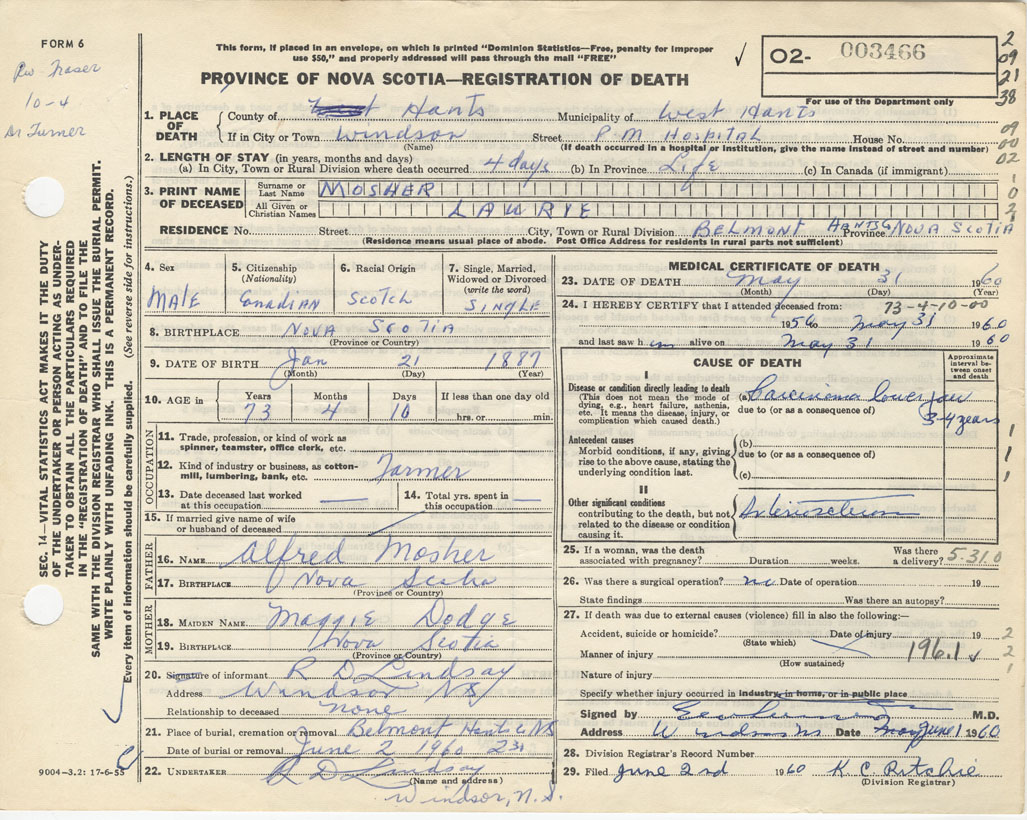 FORM 6
Rev Fraser
10-4
Dr Turner
This form, if placed in an envelope, on which is printed "Dominion Statistics—Free, penalty for improper
use $50," and properly addressed will pass through the mail "FREE"
✓
O2- 003466
For use of the Department only
2
09
21
38
PROVINCE OF NOVA SCOTIA—REGISTRATION OF DEATH
1. PLACE OF DEATH
County of Hants Municipality of West Hants
If in City or Town Windsor Street P.M. Hospital House No.
(Name) (If death occurred in a hospital or institution, give the name instead of street and number)
09
00
02
2. LENGTH OF STAY (in years, months and days)
(a) In City, Town or Rural Division where death occurred 4 days (b) In Province Life (c) In Canada (if immigrant)
3. PRINT NAME OF DECEASED
Surname or Last Name MOSHER
All Given or Christian Names LAWRIE
1
0
2
RESIDENCE No. Street City, Town or Rural Division BELMONT HANTS Co Province NOVA SCOTIA
(Residence means usual place of abode. Post Office Address for residents in rural parts not sufficient)
SEC. 14—VITAL STATISTICS ACT MAKES IT THE DUTY
OF THE UNDERTAKER OR PERSON ACTING AS UNDER-
TAKER TO OBTAIN ALL THE PARTICULARS REQUIRED
IN THE "REGISTRATION OF DEATH" AND TO FILE THE
SAME WITH THE DIVISION REGISTRAR WHO SHALL ISSUE THE BURIAL PERMIT.
WRITE PLAINLY WITH UNFADING INK. THIS IS A PERMANENT RECORD.
Every item of information should be carefully supplied. (See reverse side for instructions.)
4. Sex
MALE
5. Citizenship
(Nationality)
Canadian
6. Racial Origin
SCOTCH
7. Single, Married,
Widowed or Divorced
(write the word)
SINGLE
8. BIRTHPLACE NOVA SCOTIA
(Province or Country)
9. DATE OF BIRTH Jan 21 1887
(Month) (Day) (Year)
10. AGE in
Years Months Days If less than one day old
73 4 10 hrs. or min.
OCCUPATION
11. Trade, profession, or kind of work as
spinner, teamster, office clerk, etc.
12. Kind of industry or business, as cotton-
mill, lumbering, bank, etc. Farmer
13. Date deceased last worked
at this occupation
14. Total yrs. spent in
this occupation
15. If married give name of wife
or husband of deceased
FATHER
16. NAME Alfred Mosher
17. BIRTHPLACE Nova Scotia
(Province or Country)
MOTHER
18. MAIDEN NAME Maggie Dodge
19. BIRTHPLACE Nova Scotia
(Province or Country)
20. Signature of informant R D Lindsay
Address Windsor NS
Relationship to deceased none
21. Place of burial, cremation or removal Belmont Hants Co NS
Date of burial or removal June 2 1960
22. UNDERTAKER R D Lindsay
(Name and address)
Windsor, N.S.
9004-3.2: 17-6-55
MEDICAL CERTIFICATE OF DEATH
23. DATE OF DEATH May 31 1960
(Month) (Day) (Year)
24. I HEREBY CERTIFY that I attended deceased from: 73-4-10-00
1956 to May 31 1960
and last saw him alive on May 31 1960
CAUSE OF DEATH
Approximate interval between onset and death
I
Disease or condition directly leading to death
(This does not mean the mode of
dying, e.g., heart failure, asthenia,
etc. It means the disease, injury, or
complication which caused death.)
(a) Carcinoma lower jaw
due to (or as a consequence of)
3-4 years
Antecedent causes
Morbid conditions, if any, giving
rise to the above cause, stating the
underlying condition last.
(b)
due to (or as a consequence of)
(c)
1
1
1
II
Other significant conditions
contributing to the death, but not
related to the disease or condition
causing it.
25. If a woman, was the death
associated with pregnancy? Duration weeks. Was there
a delivery? 5.31.0
26. Was there a surgical operation? no Date of operation 19
State findings Was there an autopsy?
27. If death was due to external causes (violence) fill in also the following:—
Accident, suicide or homicide? Date of injury 19
(State which)
Manner of injury 196.1 ✓
(How sustained)
Nature of injury
2
2
1
Specify whether injury occurred in industry, in home, or in public place
Signed by M.D.
Address Windsor NS Date June 1 1960
28. Division Registrar's Record Number
29. Filed June 2nd 1960 K C Ritchie
(Division Registrar)